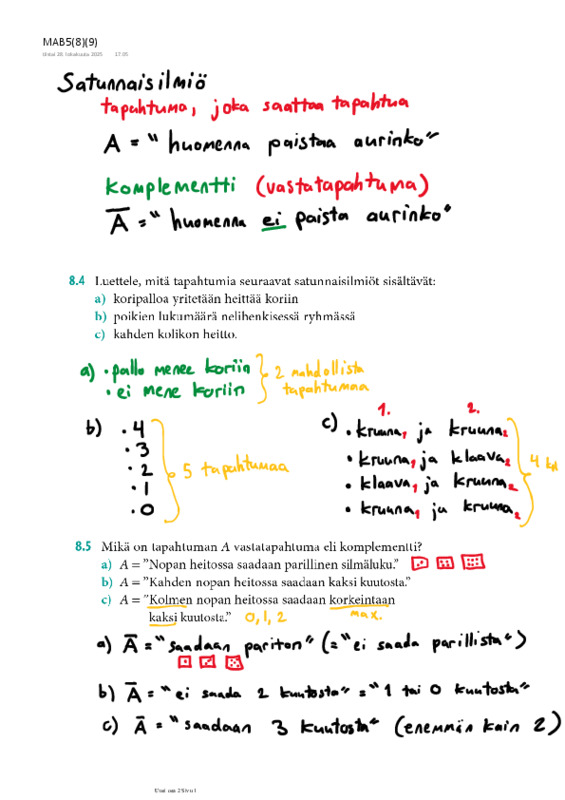 MAB5(8)(9)
tiistai 28. lokakuuta 2025 17.35
Satunnaisilmiö
tapahtuma, joka saattaa tapahtua
A = "huomenna paistaa aurinko"
Komplementti (vastatapahtuma)
A̅ = "huomenna ei paista aurinko"
8.4 Luettele, mitä tapahtumia seuraavat satunnaisilmiöt sisältävät:
a) koripalloa yritetään heittää koriin
b) poikien lukumäärä nelihenkisessä ryhmässä
c) kahden kolikon heitto.
a) • pallo menee koriin
• ei mene koriin
2 mahdollista
tapahtumaa
b) • 4
• 3
• 2
• 1
• 0
5 tapahtumaa
1. 2.
c) • kruuna₁ ja kruuna₂
• kruuna₁ ja klaava₂
• klaava₁ ja kruuna₂
• kruuna₁ ja kruuna₂
4 kpl
8.5 Mikä on tapahtuman A vastatapahtuma eli komplementti?
a) A = "Nopan heitossa saadaan parillinen silmäluku."
b) A = "Kahden nopan heitossa saadaan kaksi kuutosta."
c) A = "Kolmen nopan heitossa saadaan korkeintaan
kaksi kuutosta." 0, 1, 2 max.
a) A̅ = "saadaan pariton" (= "ei saada parillista")
b) A̅ = "ei saada 2 kuutosta" = "1 tai 0 kuutosta"
c) A̅ = "saadaan 3 kuutosta" (enemmän kuin 2)